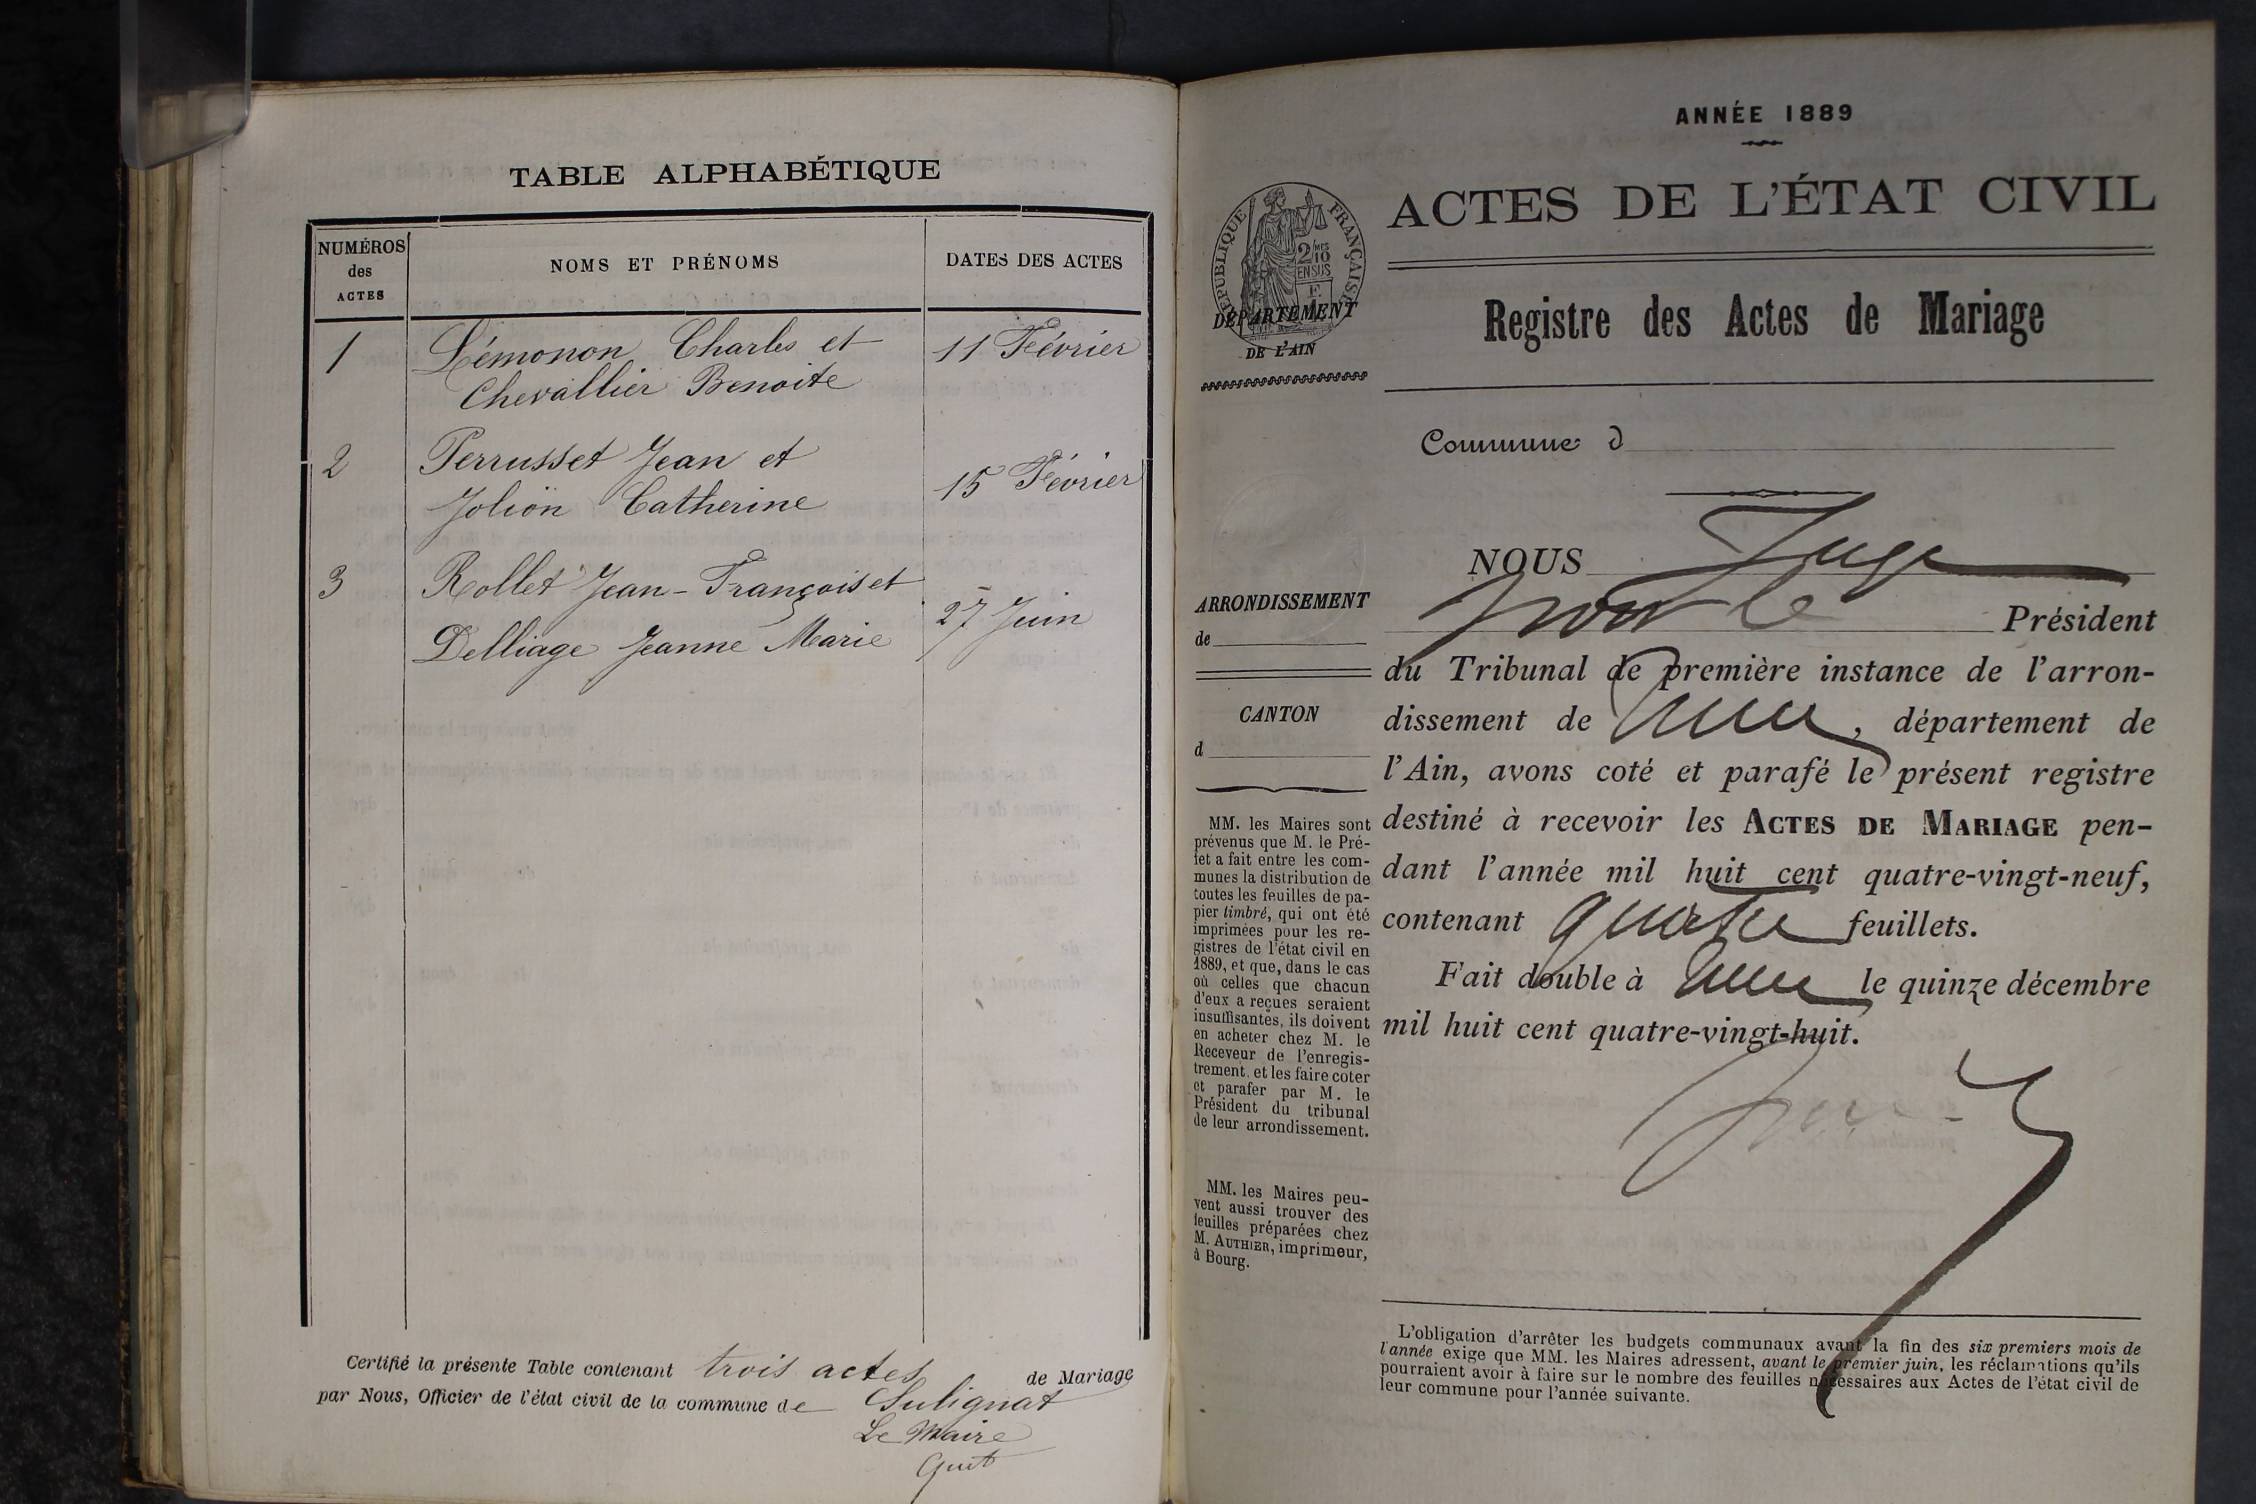 TABLE ALPHABÉTIQUE
NUMÉROS
des
ACTES
NOMS ET PRÉNOMS
DATES DES ACTES
1 Lémonon Charles et 11 Février
Chevallier Benoite
2 Perrusset Jean et 15 Février
Jolion Catherine
3 Rollet Jean-François et 27 Juin
Delliage Jeanne Marie
Certifié la présente Table contenant trois actes de Mariage
par Nous, Officier de l'état civil de la commune de Sulignat
Le Maire
ANNÉE 1889
ACTES DE L'ÉTAT CIVIL
Registre des Actes de Mariage
RÉPUBLIQUE FRANÇAISE
2/10
MES
EN SUS
DÉPARTEMENT
DE L'AIN
Commune d
ARRONDISSEMENT
de
CANTON
d
MM. les Maires sont
prévenus que M. le Pré-
fet a fait entre les com-
munes la distribution de
toutes les feuilles de pa-
pier timbré, qui ont été
imprimées pour les re-
gistres de l'état civil en
1889, et que, dans le cas
où celles que chacun
d'eux a reçues seraient
insuffisantes, ils doivent
en acheter chez M. le
Receveur de l'enregis-
trement, et les faire coter
et parafer par M. le
Président du tribunal
de leur arrondissement.
MM. les Maires peu-
vent aussi trouver des
feuilles préparées chez
M. AUTHIER, imprimeur,
à Bourg.
NOUS Juge
pour le Président
du Tribunal de première instance de l'arron-
dissement de , département de
l'Ain, avons coté et parafé le présent registre
destiné à recevoir les ACTES DE MARIAGE pen-
dant l'année mil huit cent quatre-vingt-neuf,
contenant quatre feuillets.
Fait double à le quinze décembre
mil huit cent quatre-vingt-huit.
L'obligation d'arrêter les budgets communaux avant la fin des six premiers mois de
l'année exige que MM. les Maires adressent, avant le premier juin, les réclamations qu'ils
pourraient avoir à faire sur le nombre des feuilles nécessaires aux Actes de l'état civil de
leur commune pour l'année suivante.